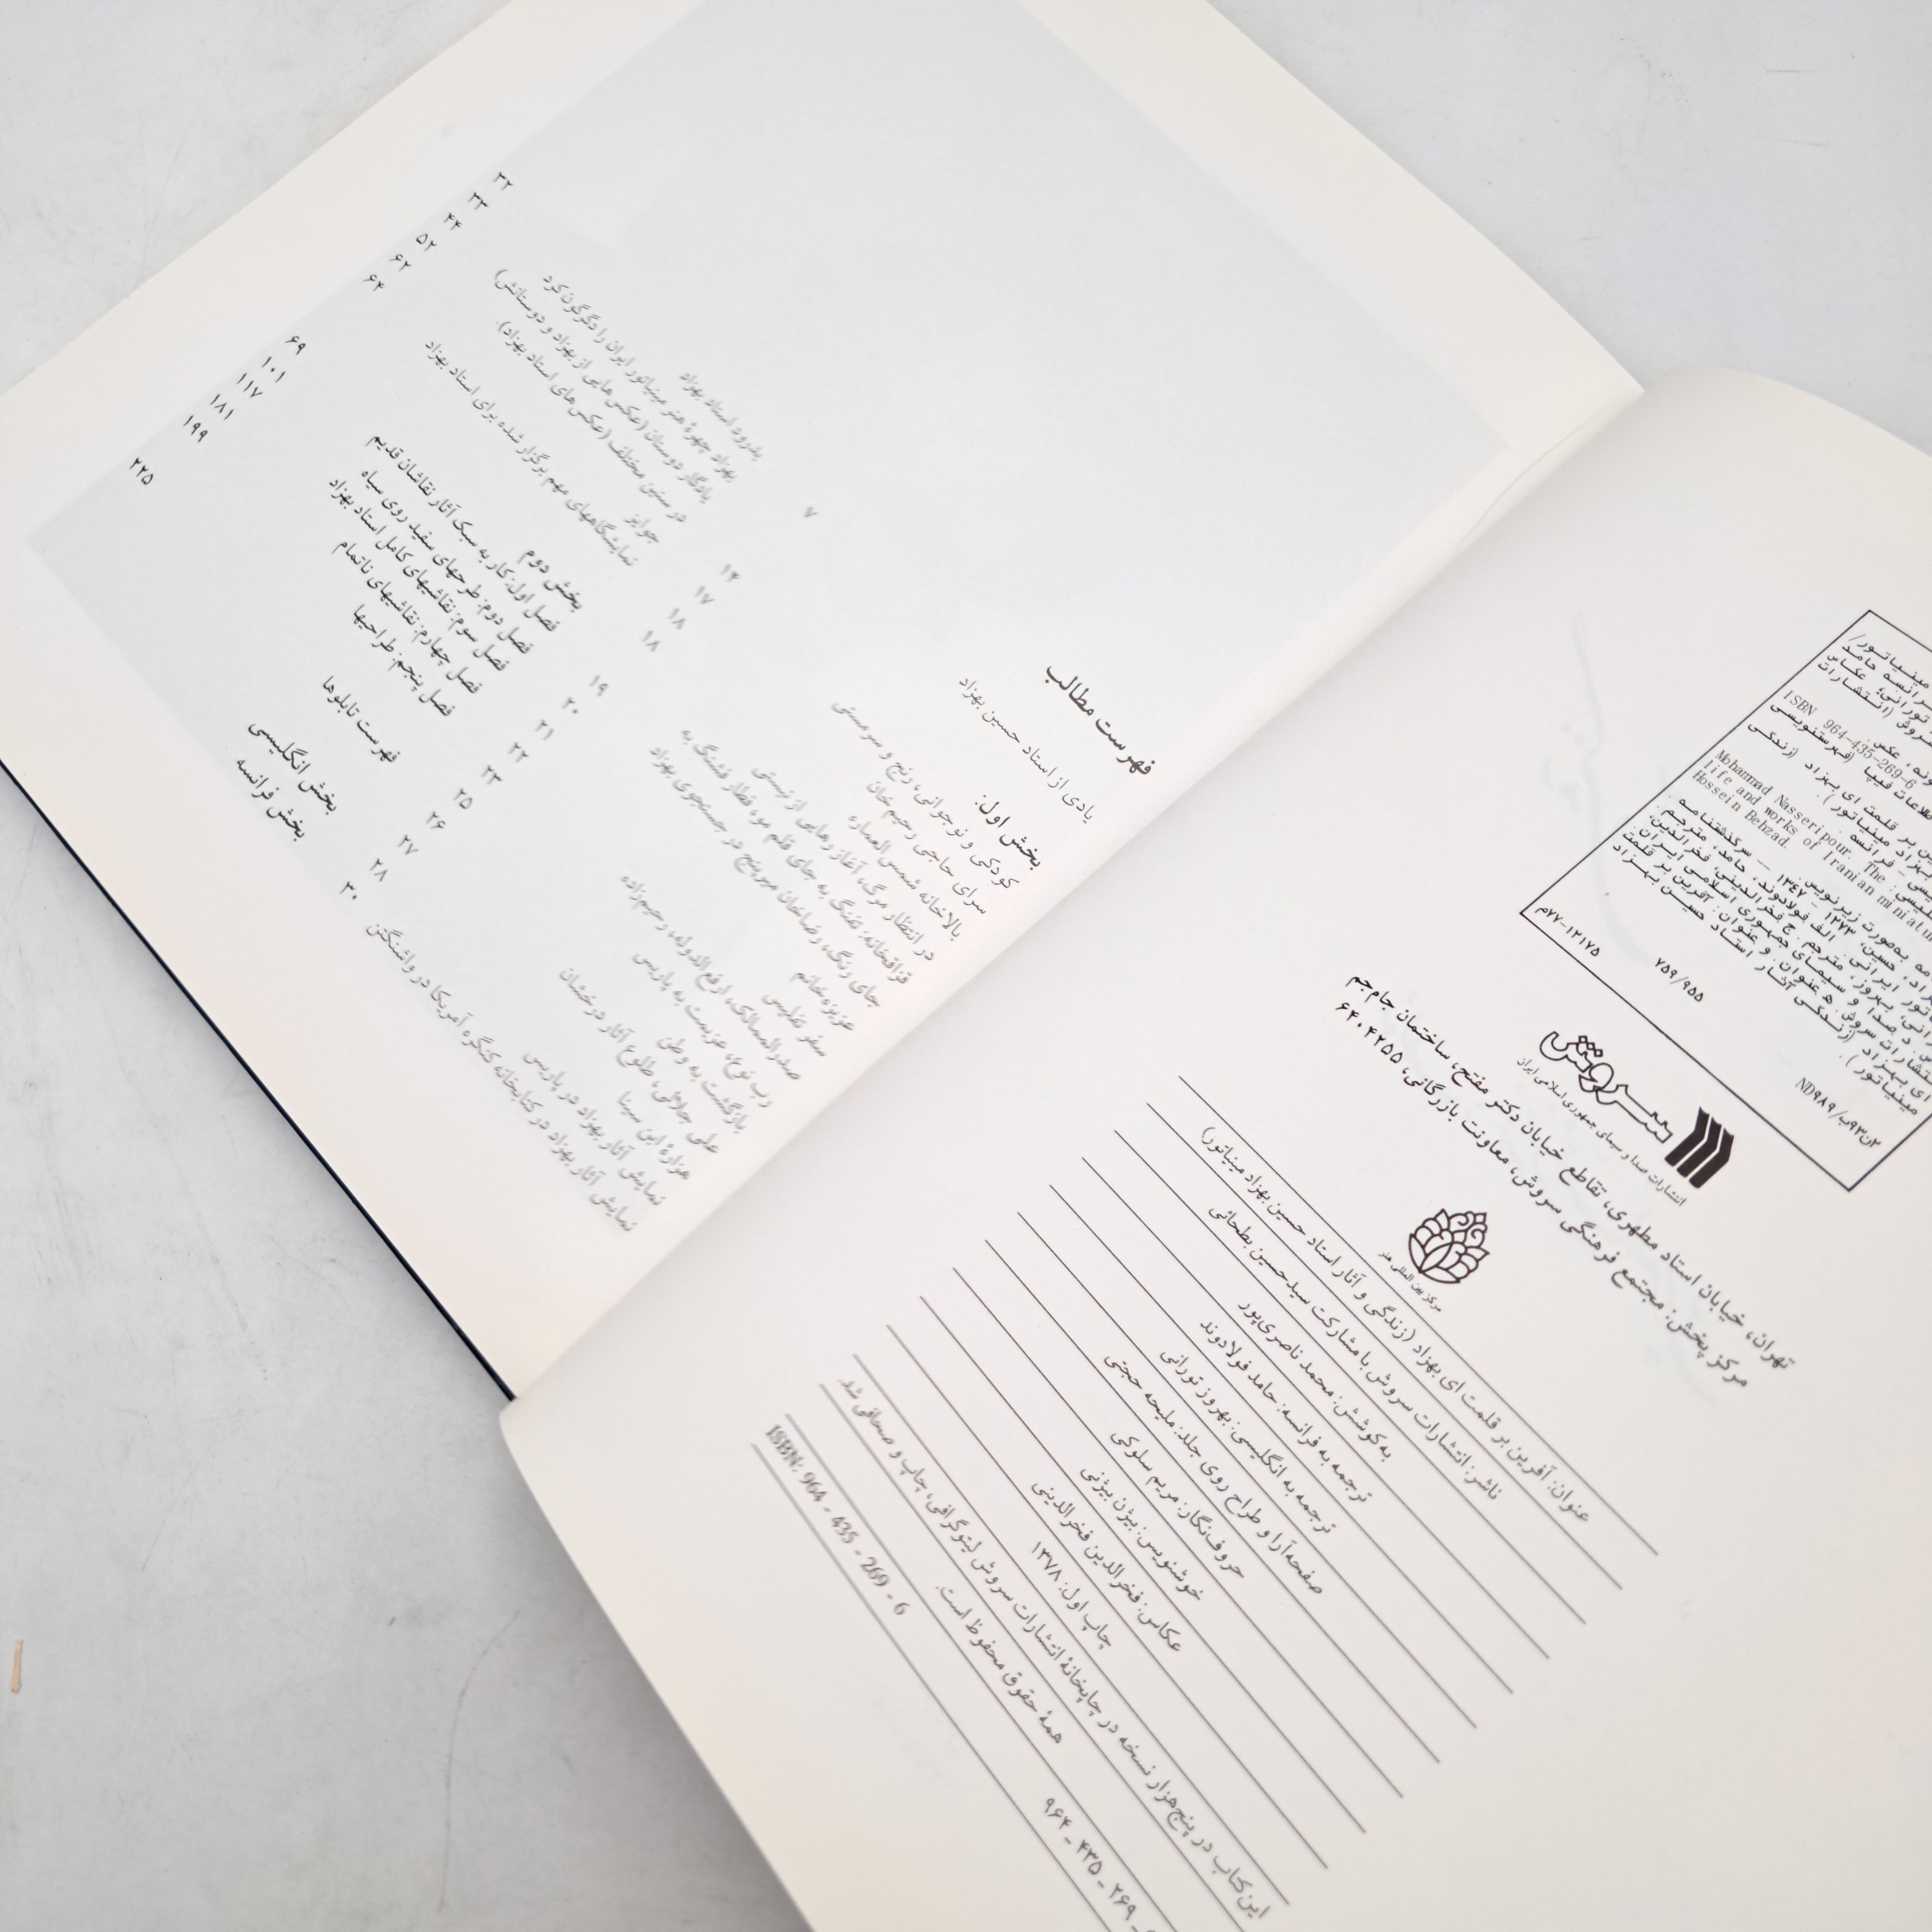 ISBN 964-435-269-6
Mohammad Nasseripour. The
life and works of Iranian
Hossein Behzad.
۷۵۹/۹۵۵
م۷۷-۱۲۱۷۵
سروش
انتشارات صدا و سیمای جمهوری اسلامی ایران
تهران، خیابان استاد مطهری، تقاطع خیابان دکتر مفتح، ساختمان جام‌جم
مرکز پخش: مجتمع فرهنگی سروش، معاونت بازرگانی، ۶۴۰۴۲۵۵
مرکز بین المللی هنر
عنوان: آفرین بر قلمت ای بهزاد (زندگی و آثار استاد حسین بهزاد مینیاتور)
ناشر: انتشارات سروش با مشارکت سیدحسین بطحائی
به کوشش: محمد ناصری‌پور
ترجمه به فرانسه: حامد فولادوند
ترجمه به انگلیسی: بهروز تورانی
صفحه‌آرا و طراح روی جلد: ملیحه حجتی
حروف‌نگار: مریم سلوکی
خوشنویس: بیژن بیژنی
عکاس: فخرالدین فخرالدینی
چاپ اول: ۱۳۷۸
این کتاب در پنج‌هزار نسخه در چاپخانهٔ انتشارات سروش لیتوگرافی، چاپ و صحافی شد.
همهٔ حقوق محفوظ است.
ISBN: 964 - 435 - 269 - 6
فهرست مطالب
یادی از استاد حسین بهزاد ۷
بخش اول:
کودکی و نوجوانی، رنج و سرمستی ۱۴
سرای حاجی رحیم خان ۱۷
بالاخانه شمس‌العماره ۱۸
در انتظار مرگ، آغاز رهایی از نیستی ۱۸
قزاقخانه: تفنگ به جای قلم مو، قطار فشنگ به
جای رنگ، رضاخان میرپنج در جستجوی بهزاد ۱۹
عزیزه خانم ۲۰
سفر تفلیس ۲۱
صدرالممالک، ارفع الدوله، رحیم‌زاده ۲۲
رب نوع، عزیمت به پاریس ۲۳
بازگشت به وطن ۲۵
علی جلالی، طلوع آثار درخشان ۲۶
هزارهٔ ابن سینا ۲۷
نمایش آثار بهزاد در پاریس ۲۸
نمایش آثار بهزاد در کتابخانه کنگره آمریکا در واشنگتن ۳۰
بدرود استاد بهزاد ۳۲
بهزاد چهرهٔ هنر مینیاتور ایران را دگرگون کرد ۳۳
یادگار دوستان (عکس‌هایی از بهزاد و دوستانش) ۴۴
در سنین مختلف (عکس‌های استاد بهزاد). ۵۲
جوایز ۶۲
نمایشگاههای مهم برگزار شده برای استاد بهزاد ۶۴
بخش دوم
فصل اول: کار به سبک آثار نقاشان قدیم ۶۹
فصل دوم: طرحهای سفید روی سیاه ۱۰۱
فصل سوم: نقاشیهای کامل استاد بهزاد ۱۱۷
فصل چهارم: نقاشیهای ناتمام ۱۸۱
فصل پنجم: طراحیها ۱۹۹
فهرست تابلوها ۲۲۵
بخش انگلیسی
بخش فرانسه